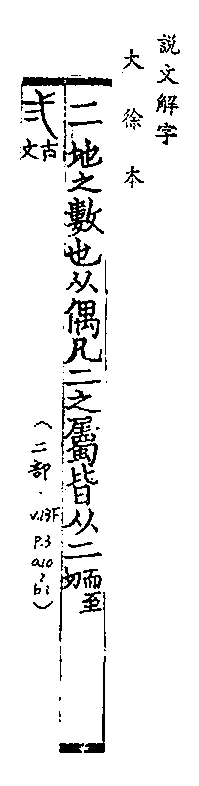 說文解字
大徐本
二地之數也从偶凡二之屬皆从二而至切
弍古文
(二部.v.13F p.3 a10 2 b1)